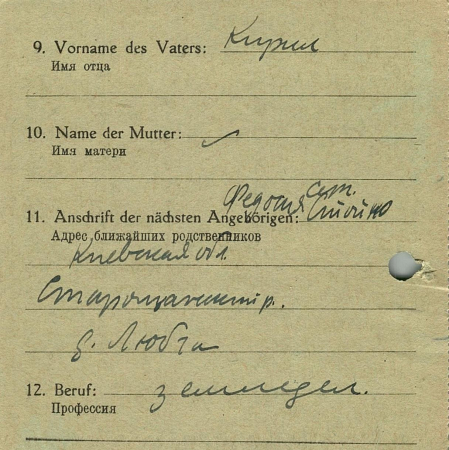 9. Vorname des Vaters: Кирил
Имя отца
10. Name der Mutter:
Имя матери
Федосия
11. Anschrift der nächsten Angehörigen:
Адрес ближайших родственников
Киевская обл.
р.
д. Любча
12. Beruf: земледел.
Профессия